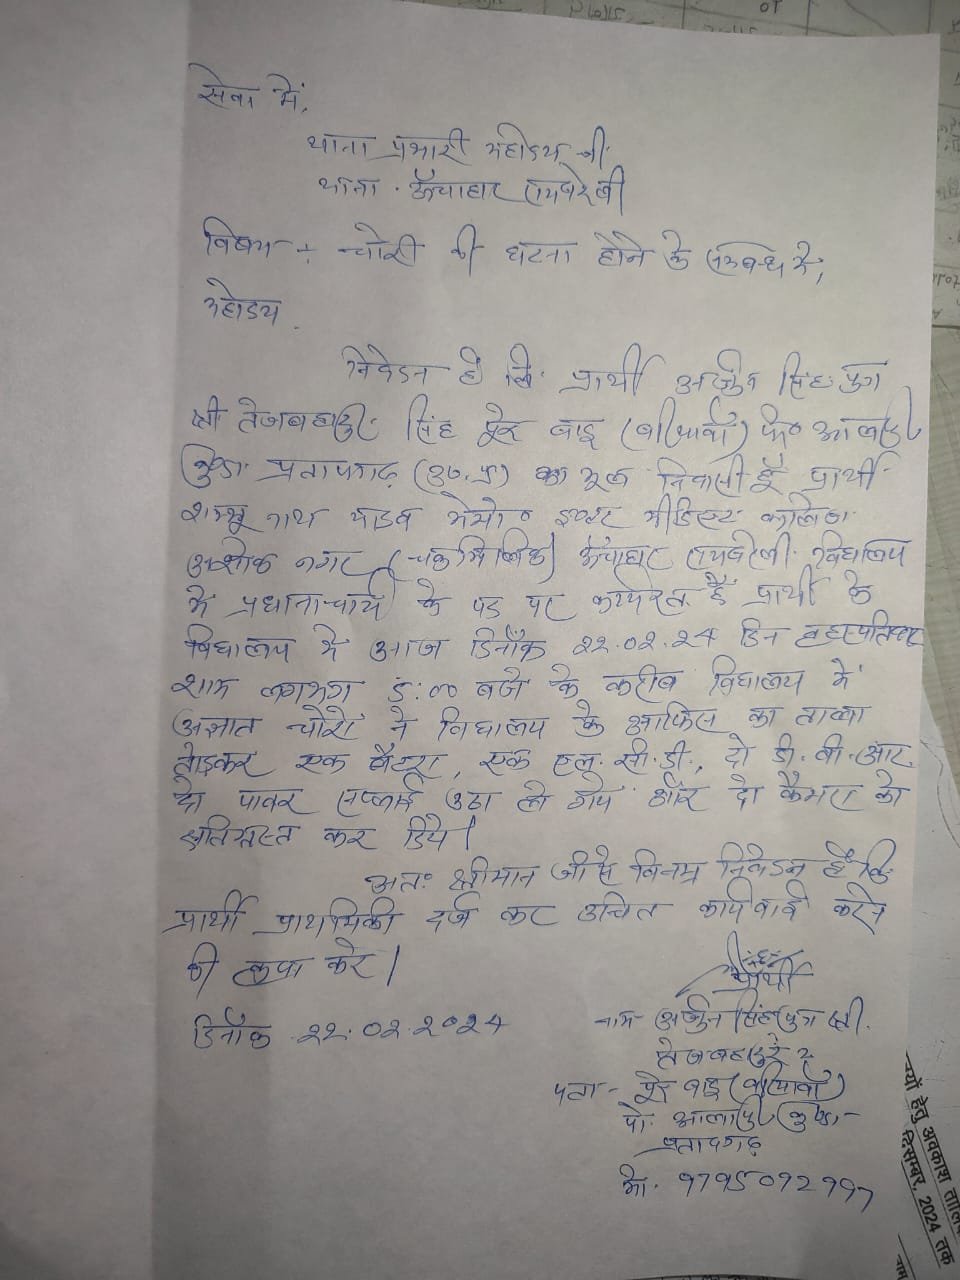 सेवा में,
थाना प्रभारी महोदय जी
थाना ऊँचाहार रायबरेली
विषय - चोरी की घटना होने के सम्बन्ध में,
महोदय
निवेदन है कि प्रार्थी अर्जुन सिंह पुत्र
श्री तेजबहादुर सिंह पूरे बाड (बीरापारवी) पो० आलापुर
कुण्डा प्रतापगढ़ (उ०.प्र) का मूल निवासी हूँ प्रार्थी
शम्भू नाथ यादव मेमो० इण्टर मीडिएट कालेज
अशोक नगर (चकमिलिक) ऊँचाहार रायबरेली विद्यालय
में प्रधानाचार्य के पद पर कार्यरत है प्रार्थी के
विद्यालय में आज दिनाँक 22.02.24 दिन बृहस्पतिवार
शाम लगभग 5:00 बजे के करीब विद्यालय में
अज्ञात चोरो ने विद्यालय के आफिस का ताला
तोड़कर एक बैट्रा, एक एल.सी.डी., दो डी.वी.आर.
दो पावर सप्लाई उठा ले गये और दो कैमरा को
क्षतिग्रस्त कर दिये।
अतः श्रीमान जी से विनम्र निवेदन है कि
प्रार्थी प्राथमिकी दर्ज कर उचित कार्यवाई करने
की कृपा करे।
प्रार्थी
दिनाँक 22.02.2024
नाम अर्जुन सिंह पुत्र श्री.
तेजबहादुर
पता - पूरे बाड
पो. आलापुर कुण्डा -
प्रतापगढ़
मो. 9795092997
यों हेतु अवकाश तालि
दिसम्बर, 2024 तक
नाम